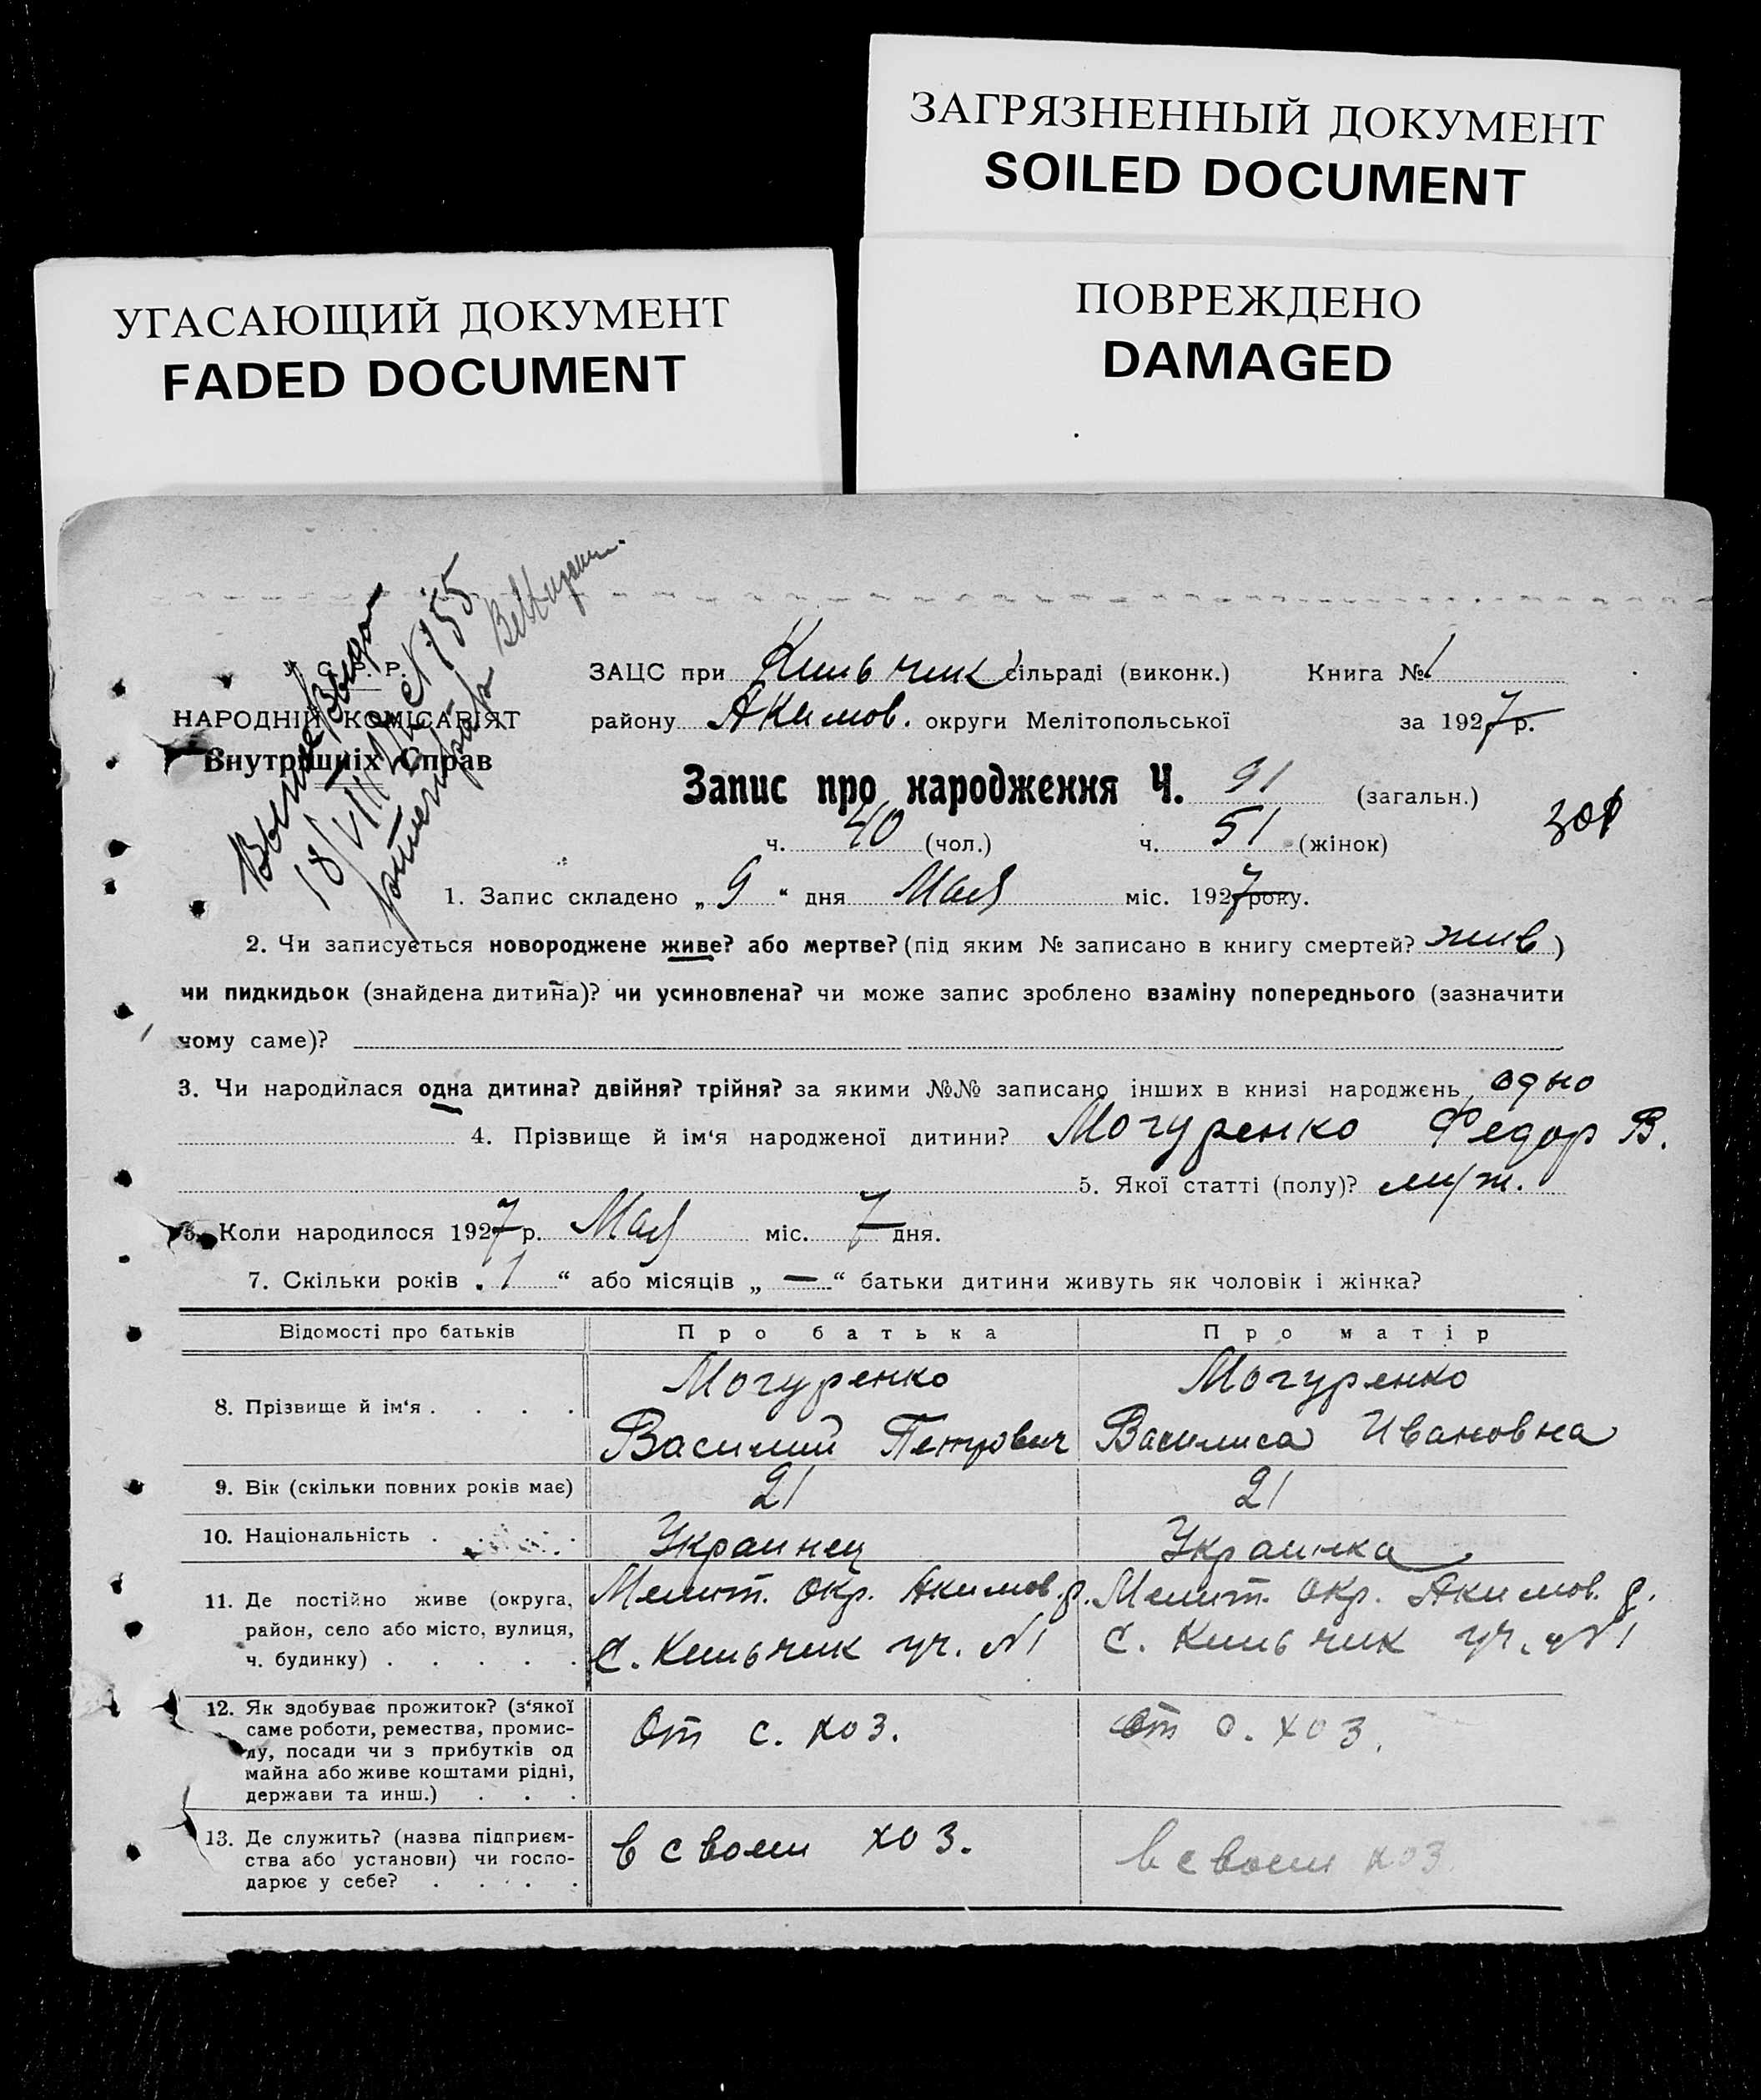 ЗАГРЯЗНЕННЫЙ ДОКУМЕНТ
SOILED DOCUMENT
УГАСАЮЩИЙ ДОКУМЕНТ
FADED DOCUMENT
ПОВРЕЖДЕНО
DAMAGED
НАРОДНІЙ КОМІСАРІЯТ
Внутрішніх Справ
ЗАЦС при Кильчик сільраді (виконк.) Книга № 1
району Акимов. округи Мелітопольської за 1927 р.
Запис про народження Ч. 91 (загальн.)
ч. 40 (чол.) ч. 51 (жінок)
1. Запис складено „ 9 “ дня Мая міс. 1927 року.
2. Чи записується новороджене живе? або мертве? (під яким № записано в книгу смертей? жив)
чи пидкидьок (знайдена дитина)? чи усиновлена? чи може запис зроблено взаміну попереднього (зазначити
чому саме)?
3. Чи народилася одна дитина? двійня? трійня? за якими №№ записано інших в книзі народжень одно
4. Прізвище й ім‘я народженої дитини? Могуренко Федор В.
5. Якої статті (полу)? муж.
6. Коли народилося 1927 р. Мая міс. 7 дня.
7. Скільки років „ 1 “ або місяців „ — “ батьки дитини живуть як чоловік і жінка?
Відомості про батьків Про батька Про матір
8. Прізвище й ім‘я . . . . Могуренко Могуренко
Василий Петрович Василиса Ивановна
9. Вік (скільки повних років має) 21 21
10. Національність . Украинец Украинка
11. Де постійно живе (округа, район, село або місто, вулиця, ч. будинку) . . . . . Мелит. окр. Акимов. р. Мелит. окр. Акимов. р.
с. Кильчик уч. №1 с. Кильчик уч. №1
12. Як здобуває прожиток? (з‘якої саме роботи, ремества, промислу, посади чи з прибутків од майна або живе коштами рідні, держави та инш.) . . . От с. хоз. От с. хоз.
13. Де служить? (назва підприємства або установи) чи господарює у себе? . . . . в своем хоз. в своем хоз.